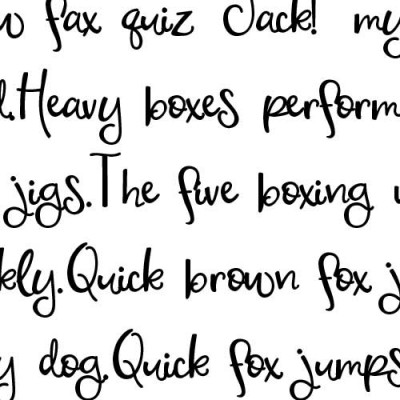 w fax quiz Jack! my
l.Heavy boxes perform
jigs.The five boxing
kly.Quick brown fox j
y dog.Quick fox jumps